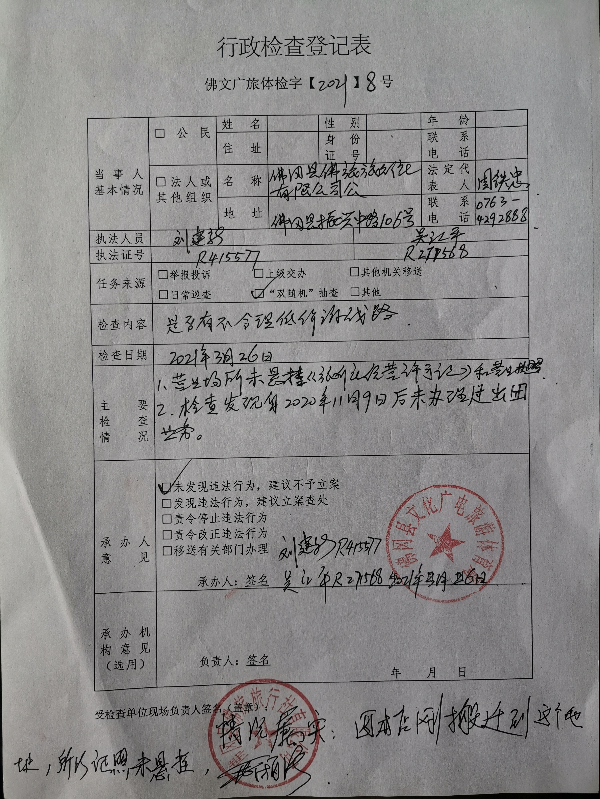 行政检查登记表
佛文广旅体检字【2021】8号
当事人
基本情况
□公民
姓名
性别
年龄
住址
身份
证号
联系
电话
□法人或
其他组织
名称
佛冈县
有限公司
法定代
表人
周铁忠
地址
佛冈县振兴中路106号
联系
电话
0763-
4292888
执法人员
执法证号
R415577
任务来源
□举报投诉 □上级交办 □其他机关移送
□日常巡查 □“双随机”抽查 □其他
检查内容
是否有不合理低价游线路
检查日期
2021年3月26日
主要
检查
情况
1.营业场所未悬挂《旅行社经营许可证》和营业执照
2.检查发现自2020年11月9日后未办理进出团
业务。
承办人
意见
□未发现违法行为，建议不予立案
□发现违法行为，建议立案查处
□责令停止违法行为
□责令改正违法行为
□移送有关部门办理
R415577
承办人：签名
2021年3月26日
佛冈县文化广电旅游体育
承办机
构意见
（选用）
负责人：签名
年 月 日
受检查单位现场负责人签名（盖章）：
情况属实：因本店刚搬迁到这个地
址，所以证照未悬挂，